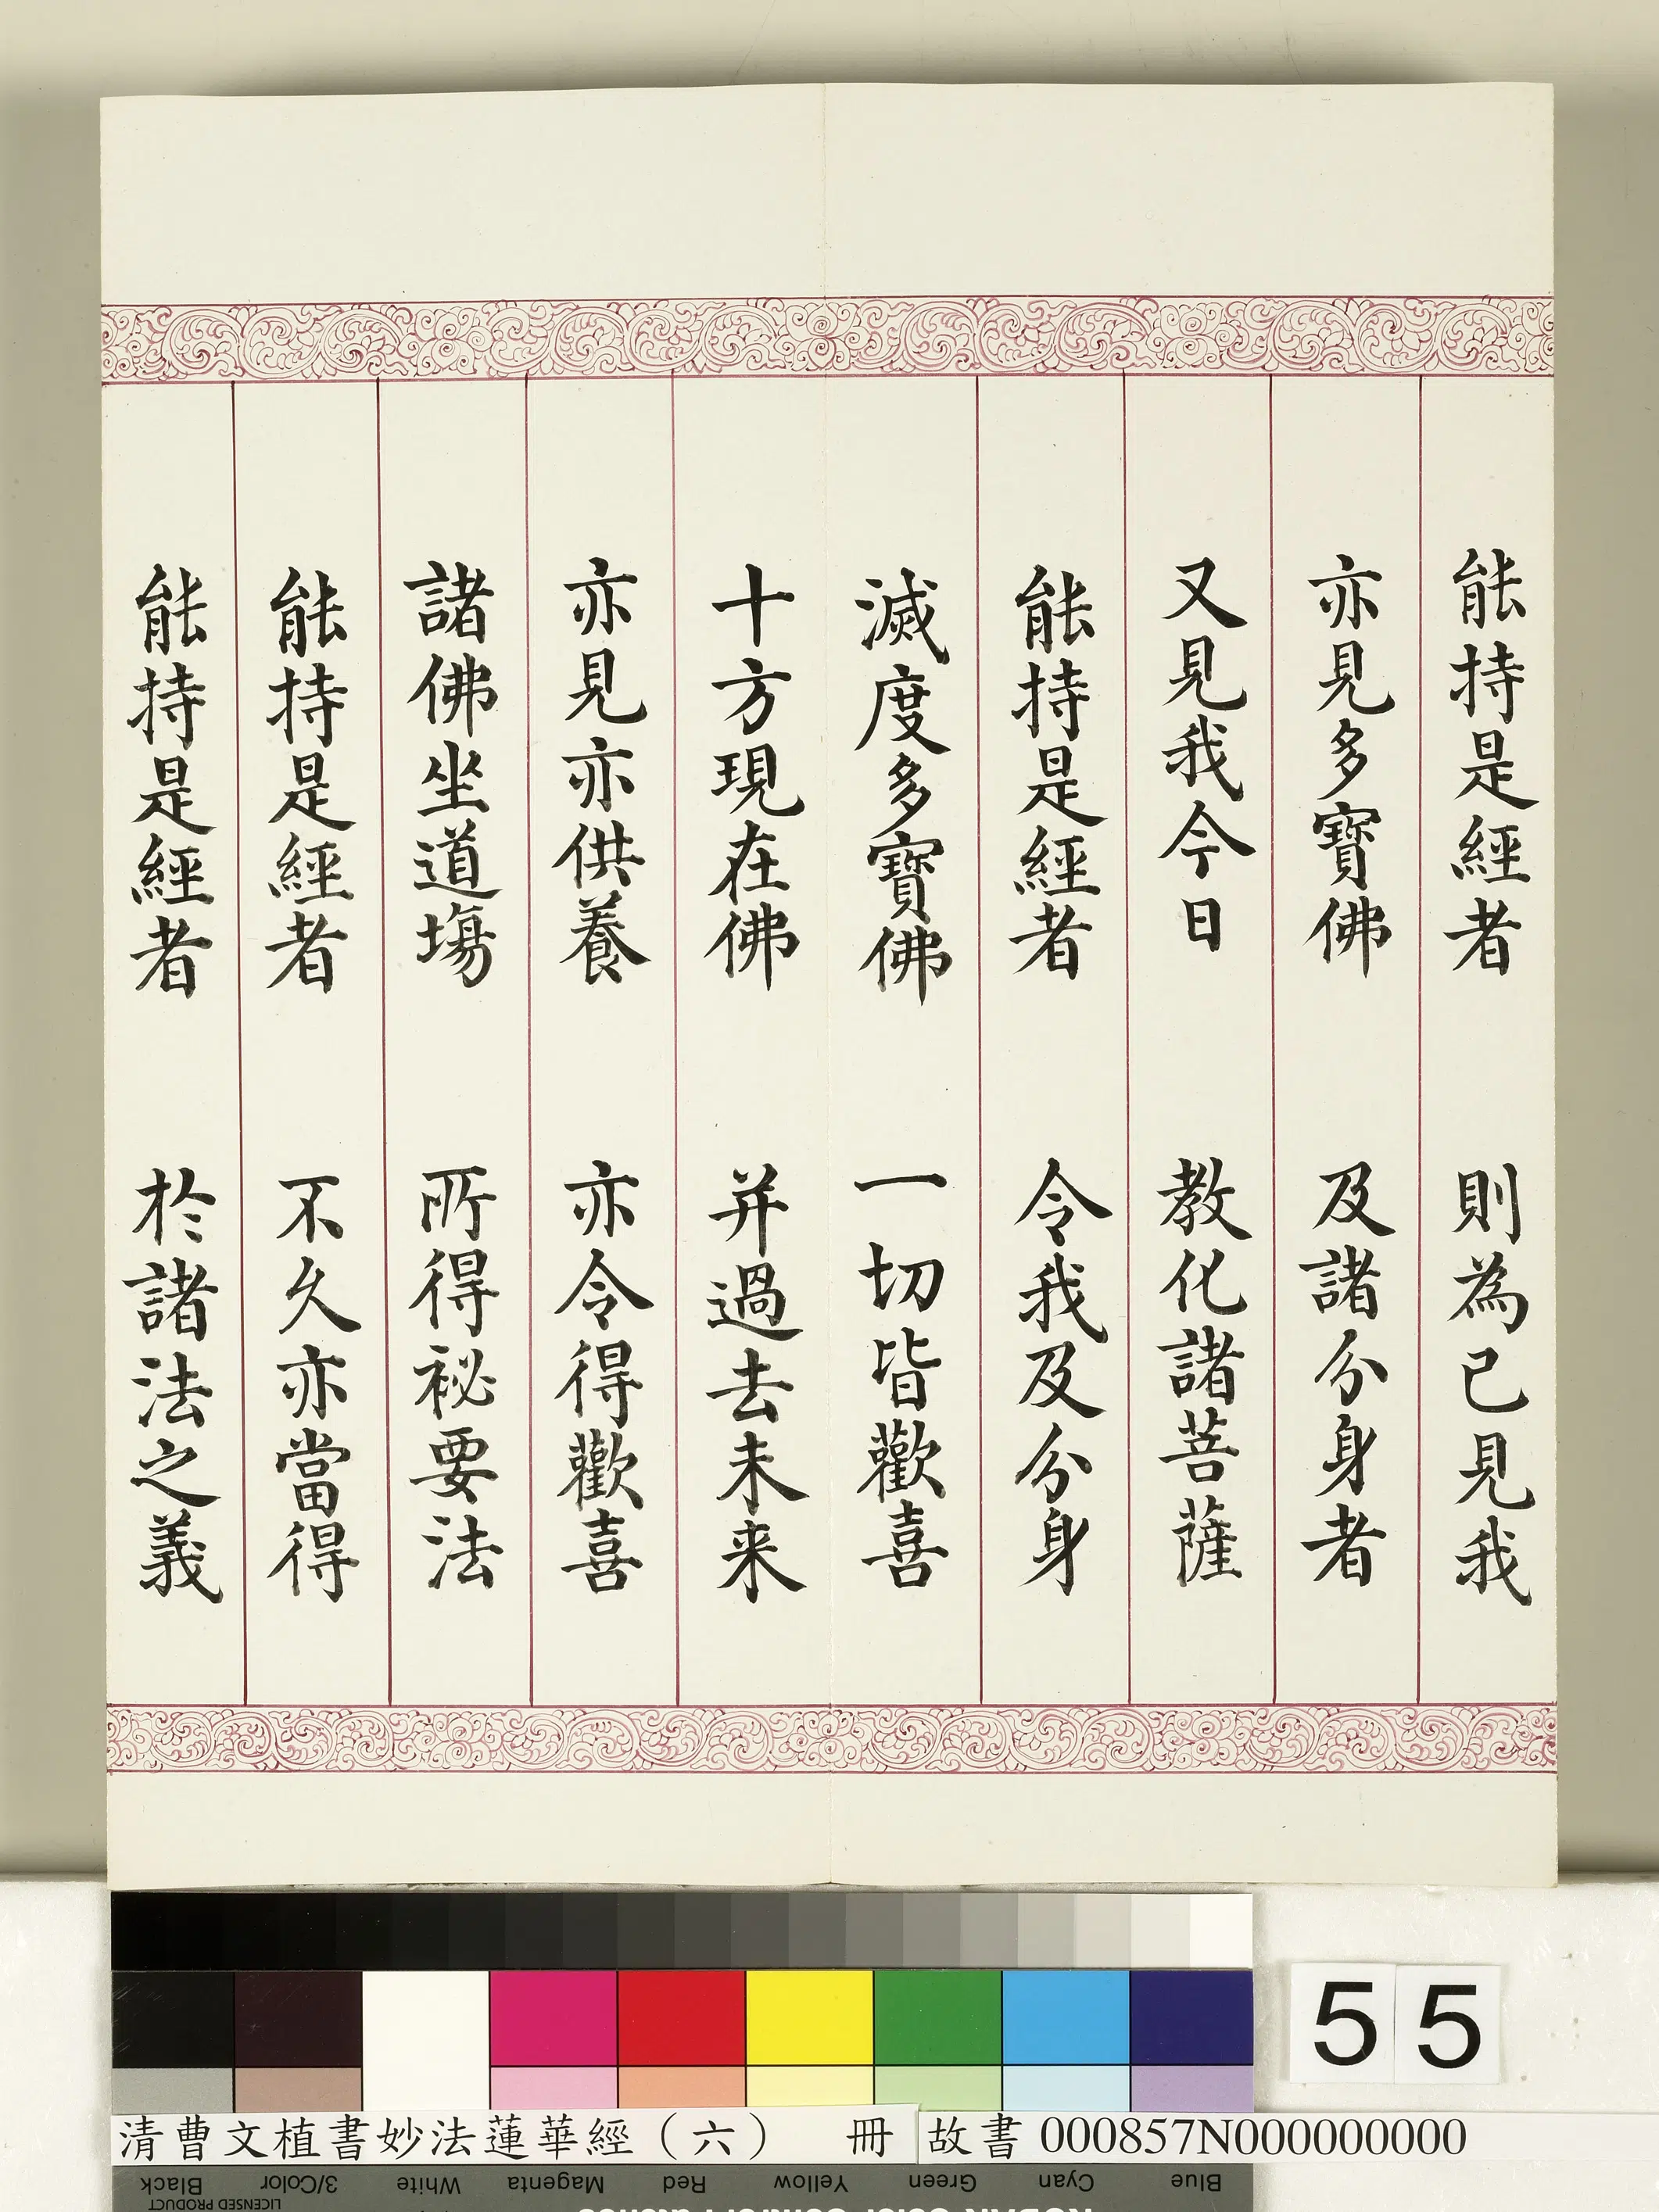 能持是經者　則為已見我
亦見多寶佛　及諸分身者
又見我今日　教化諸菩薩
能持是經者　令我及分身
滅度多寶佛　一切皆歡喜
十方現在佛　并過去未来
亦見亦供養　亦令得歡喜
諸佛坐道塲　所得祕要法
能持是經者　不久亦當得
能持是經者　於諸法之義
55
清曹文植書妙法蓮華經（六）　冊
故書 000857N000000000
Black 3/Color White Magenta Red Yellow Green Cyan Blue
LICENSED PRODUCT